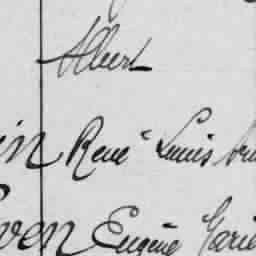 Albert
in René Louis
ven Eugène Marie